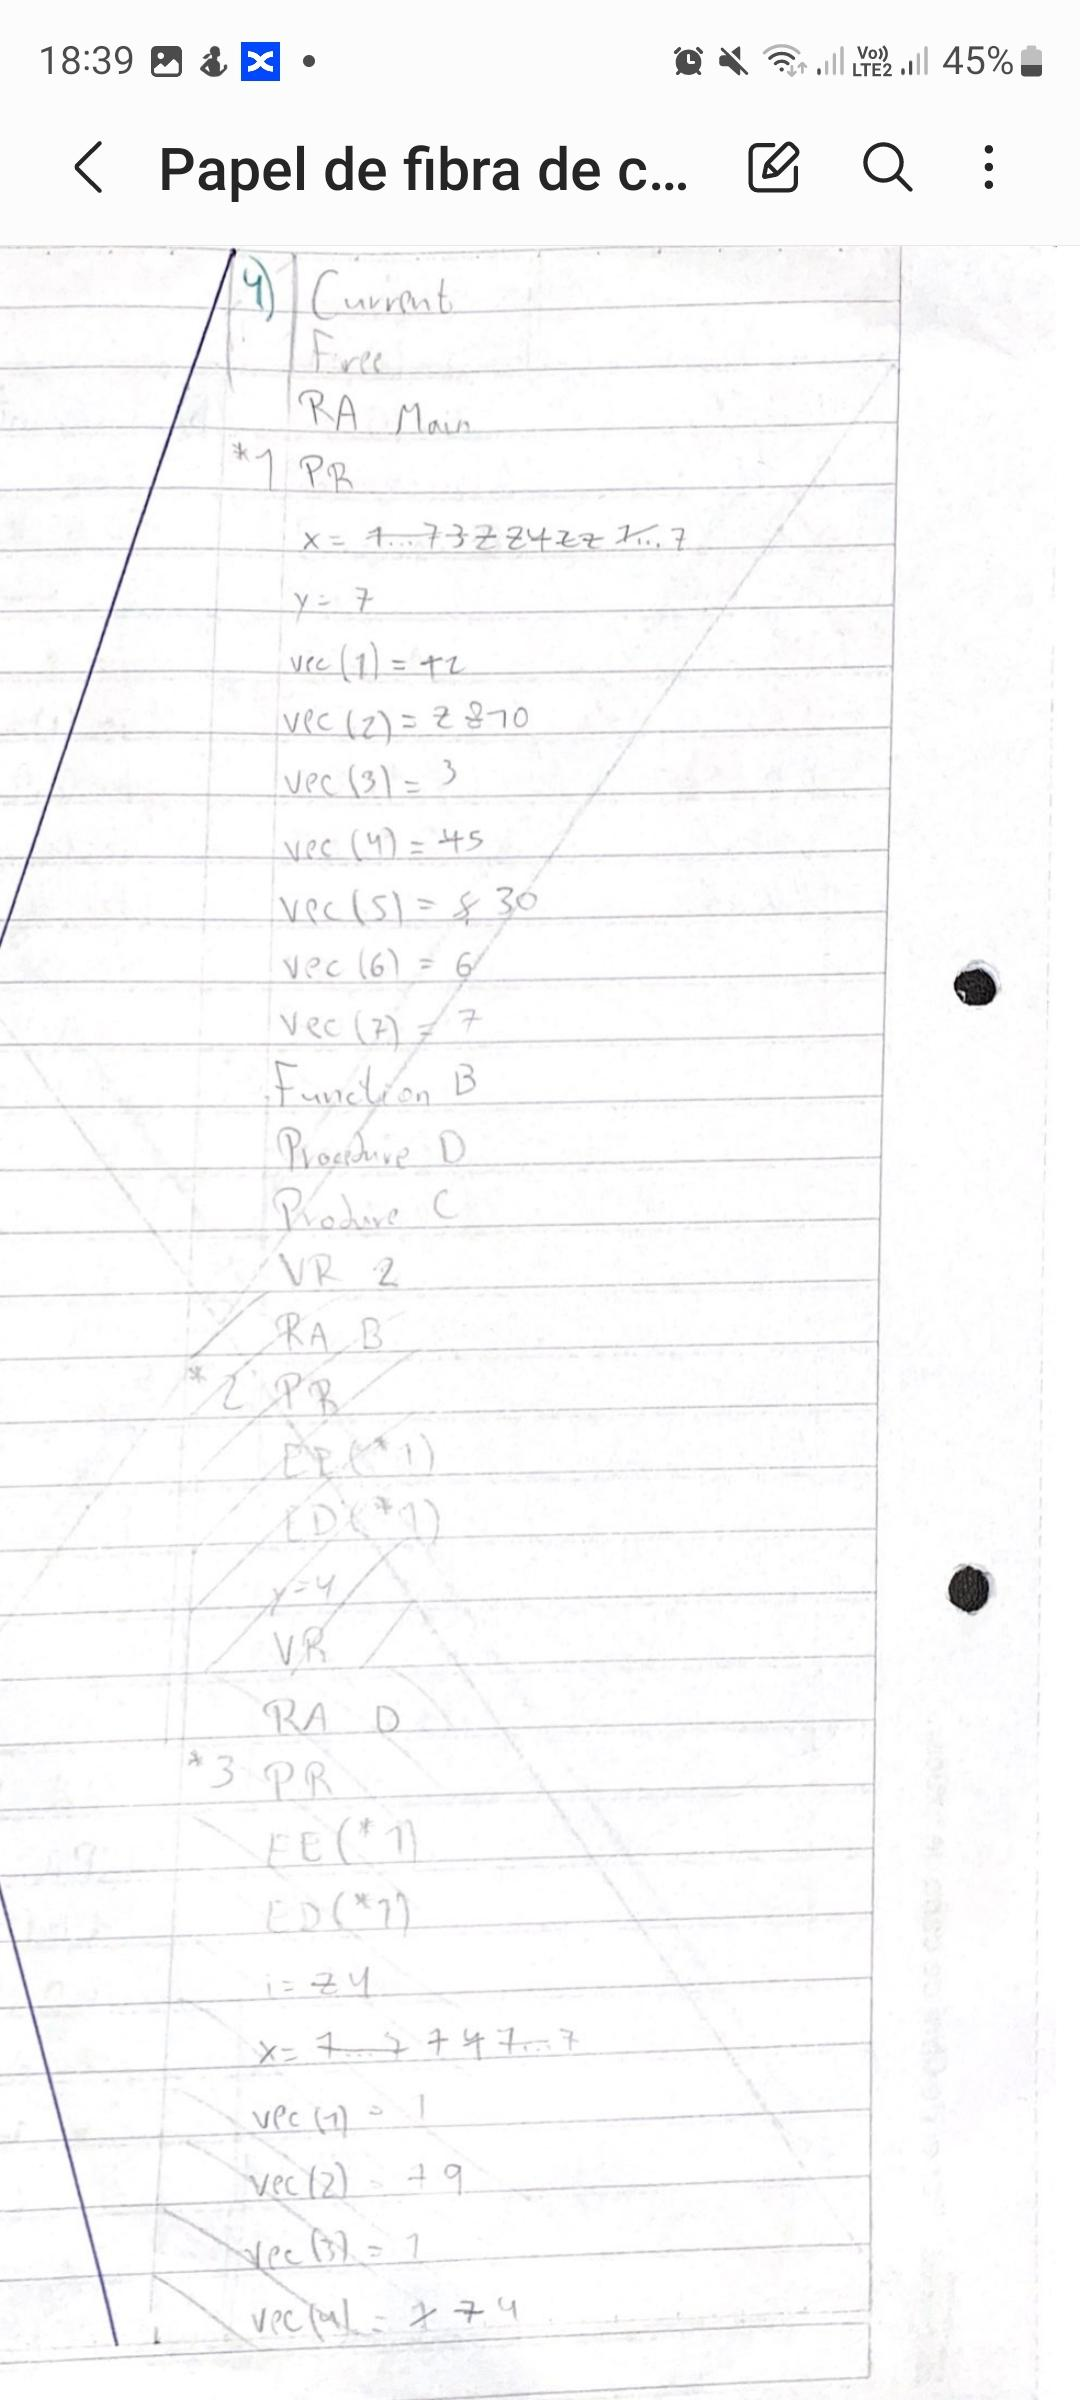 18:39
Vo))
LTE2
45%
Papel de fibra de c...
4) Current
Free
RA Main
*1 PR
x = 1...7 3 2 2 4 2 2 1... 7
y = 7
vec (1) = +2
vec (2) = 2 8 10
vec (3) = 3
vec (4) = 45
vec (5) = 8 30
vec (6) = 6
vec (7) = 7
Function B
Procedure D
Produre C
VR 2
RA B
*2 PR
EE (*1)
ED (*1)
y=4
VR
RA D
*3 PR
EE (*1)
ED (*1)
i = 2 4
x = 1...7 7 4 1...7
vec (1) = 1
vec (2) = 7 9
vec (3) = 1
vec (4) = 1 7 4